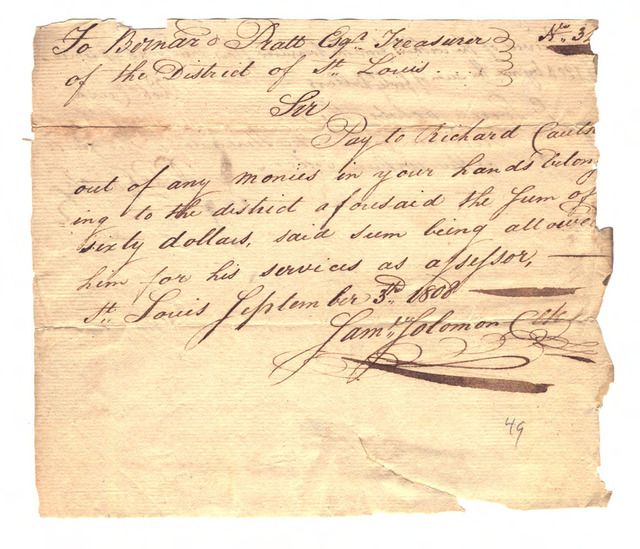 To Bernard Pratt Esqr. Treasurer No. 3
of the District of St. Louis
Sir
Pay to Richard Cauls
out of any monies in your hands belong
ing to the district aforesaid the Sum of
sixty dollars, said sum being allowed
him for his services as assessor,
St. Louis September 3rd. 1808
Saml. Solomon Clk
49